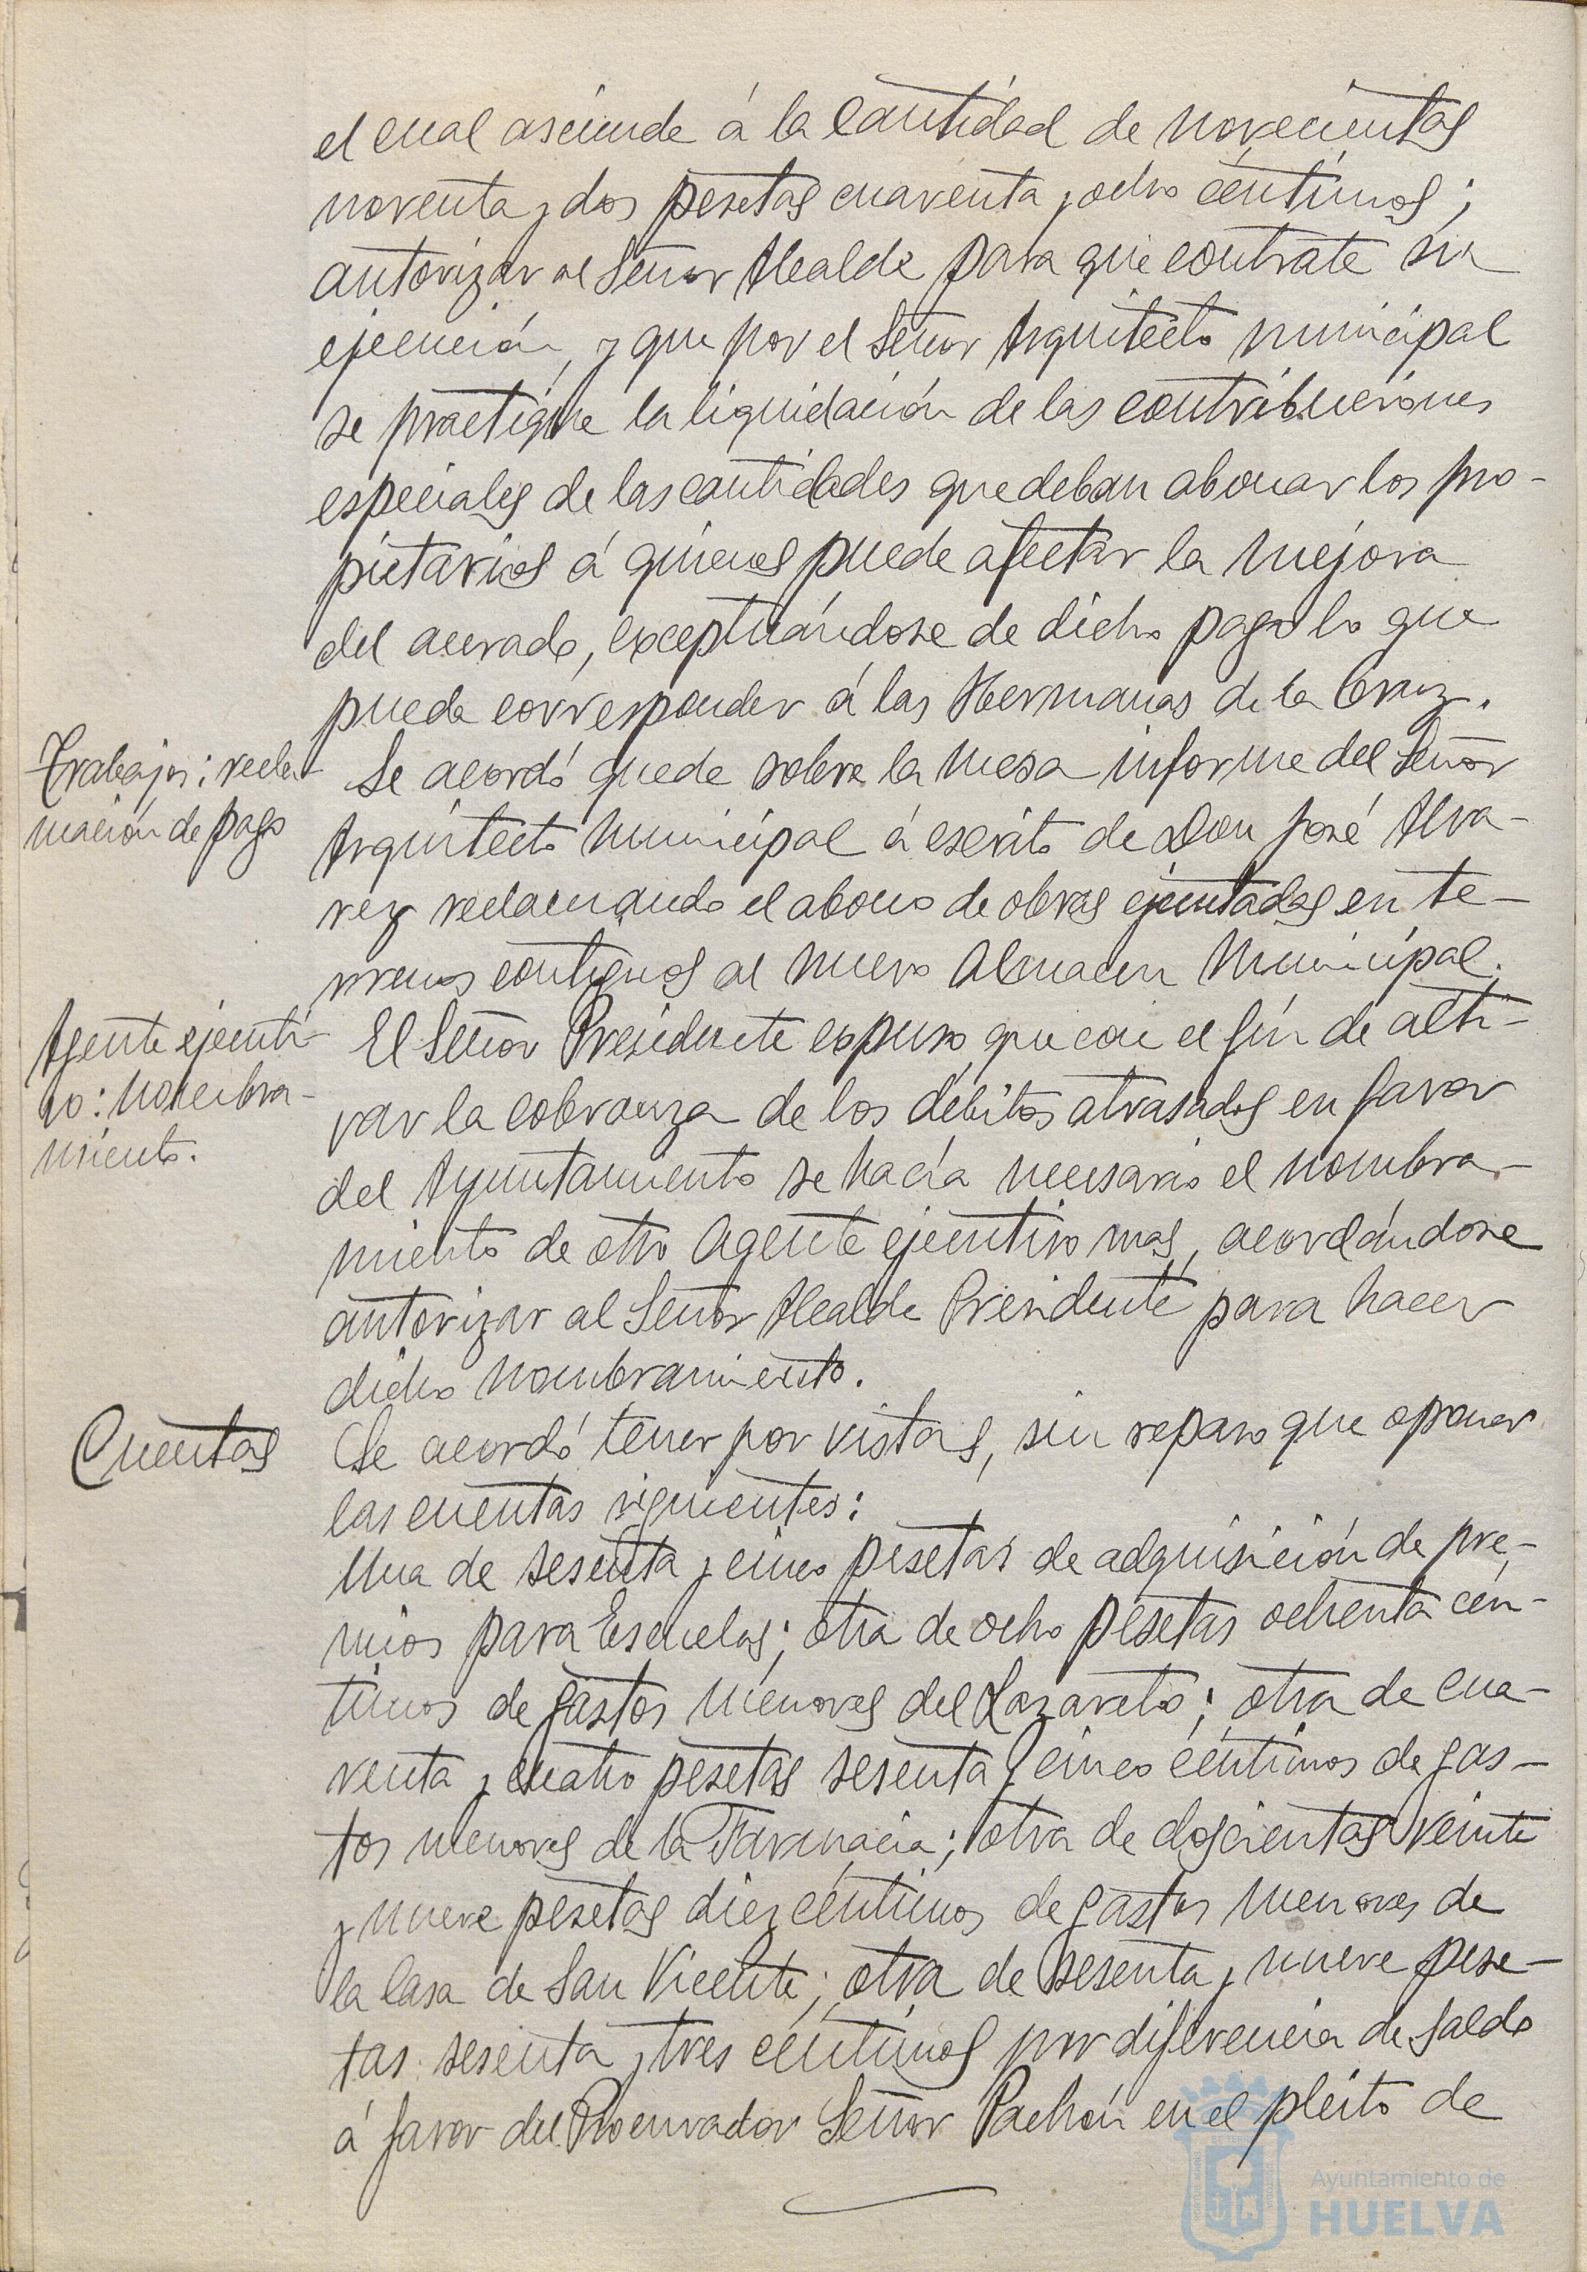 el cual asciende á la cantidad de novecientas
noventa y dos pesetas cuarenta y ocho céntimos;
autorizar al Señor Alcalde para que contrate su
ejecución, y que por el Señor Arquitecto municipal
se practique la liquidación de las contribuciones
especiales de las cantidades que deban abonar los pro-
pietarios á quienes puede afectar la mejora
del acerado, exceptuándose de dicho pago lo que
puede corresponder á las Hermanas de la Cruz.
Trabajos: recla-
mación de pago
Se acordó quede sobre la mesa informe del Señor
Arquitecto Municipal á escrito de Don José Alva-
rez reclamando el abono de obras ejecutadas en te-
rrenos contiguos al nuevo Almacen Municipal.
Agente ejecuti-
vo: nombra-
miento.
El Señor Presidente expuso que con el fín de acti-
var la cobranza de los débitos atrasados en favor
del Ayuntamiento se hacía necesario el nombra-
miento de otro Agente ejecutivo mas, acordándose
autorizar al Señor Alcalde Presidente para hacer
dicho nombramiento.
Cuentas
Se acordó tener por vistas, sin reparo que oponer
las cuentas siguientes:
Una de sesenta y cinco pesetas de adquisición de pre-
mios para Escuelas; otra de ocho pesetas ochenta cén-
timos de gastos menores del Lazareto; otra de cua-
renta y cuatro pesetas sesenta y cinco céntimos de gas-
tos menores de la Farmacia; otra de doscientas veinte
y nueve pesetas diez céntimos de gastos menores de
la Casa de San Vicente; otra de sesenta y nueve pese-
tas sesenta y tres céntimos por diferencia de saldo
á favor del Procurador Señor Pachón en el pleito de
Ayuntamiento de
HUELVA